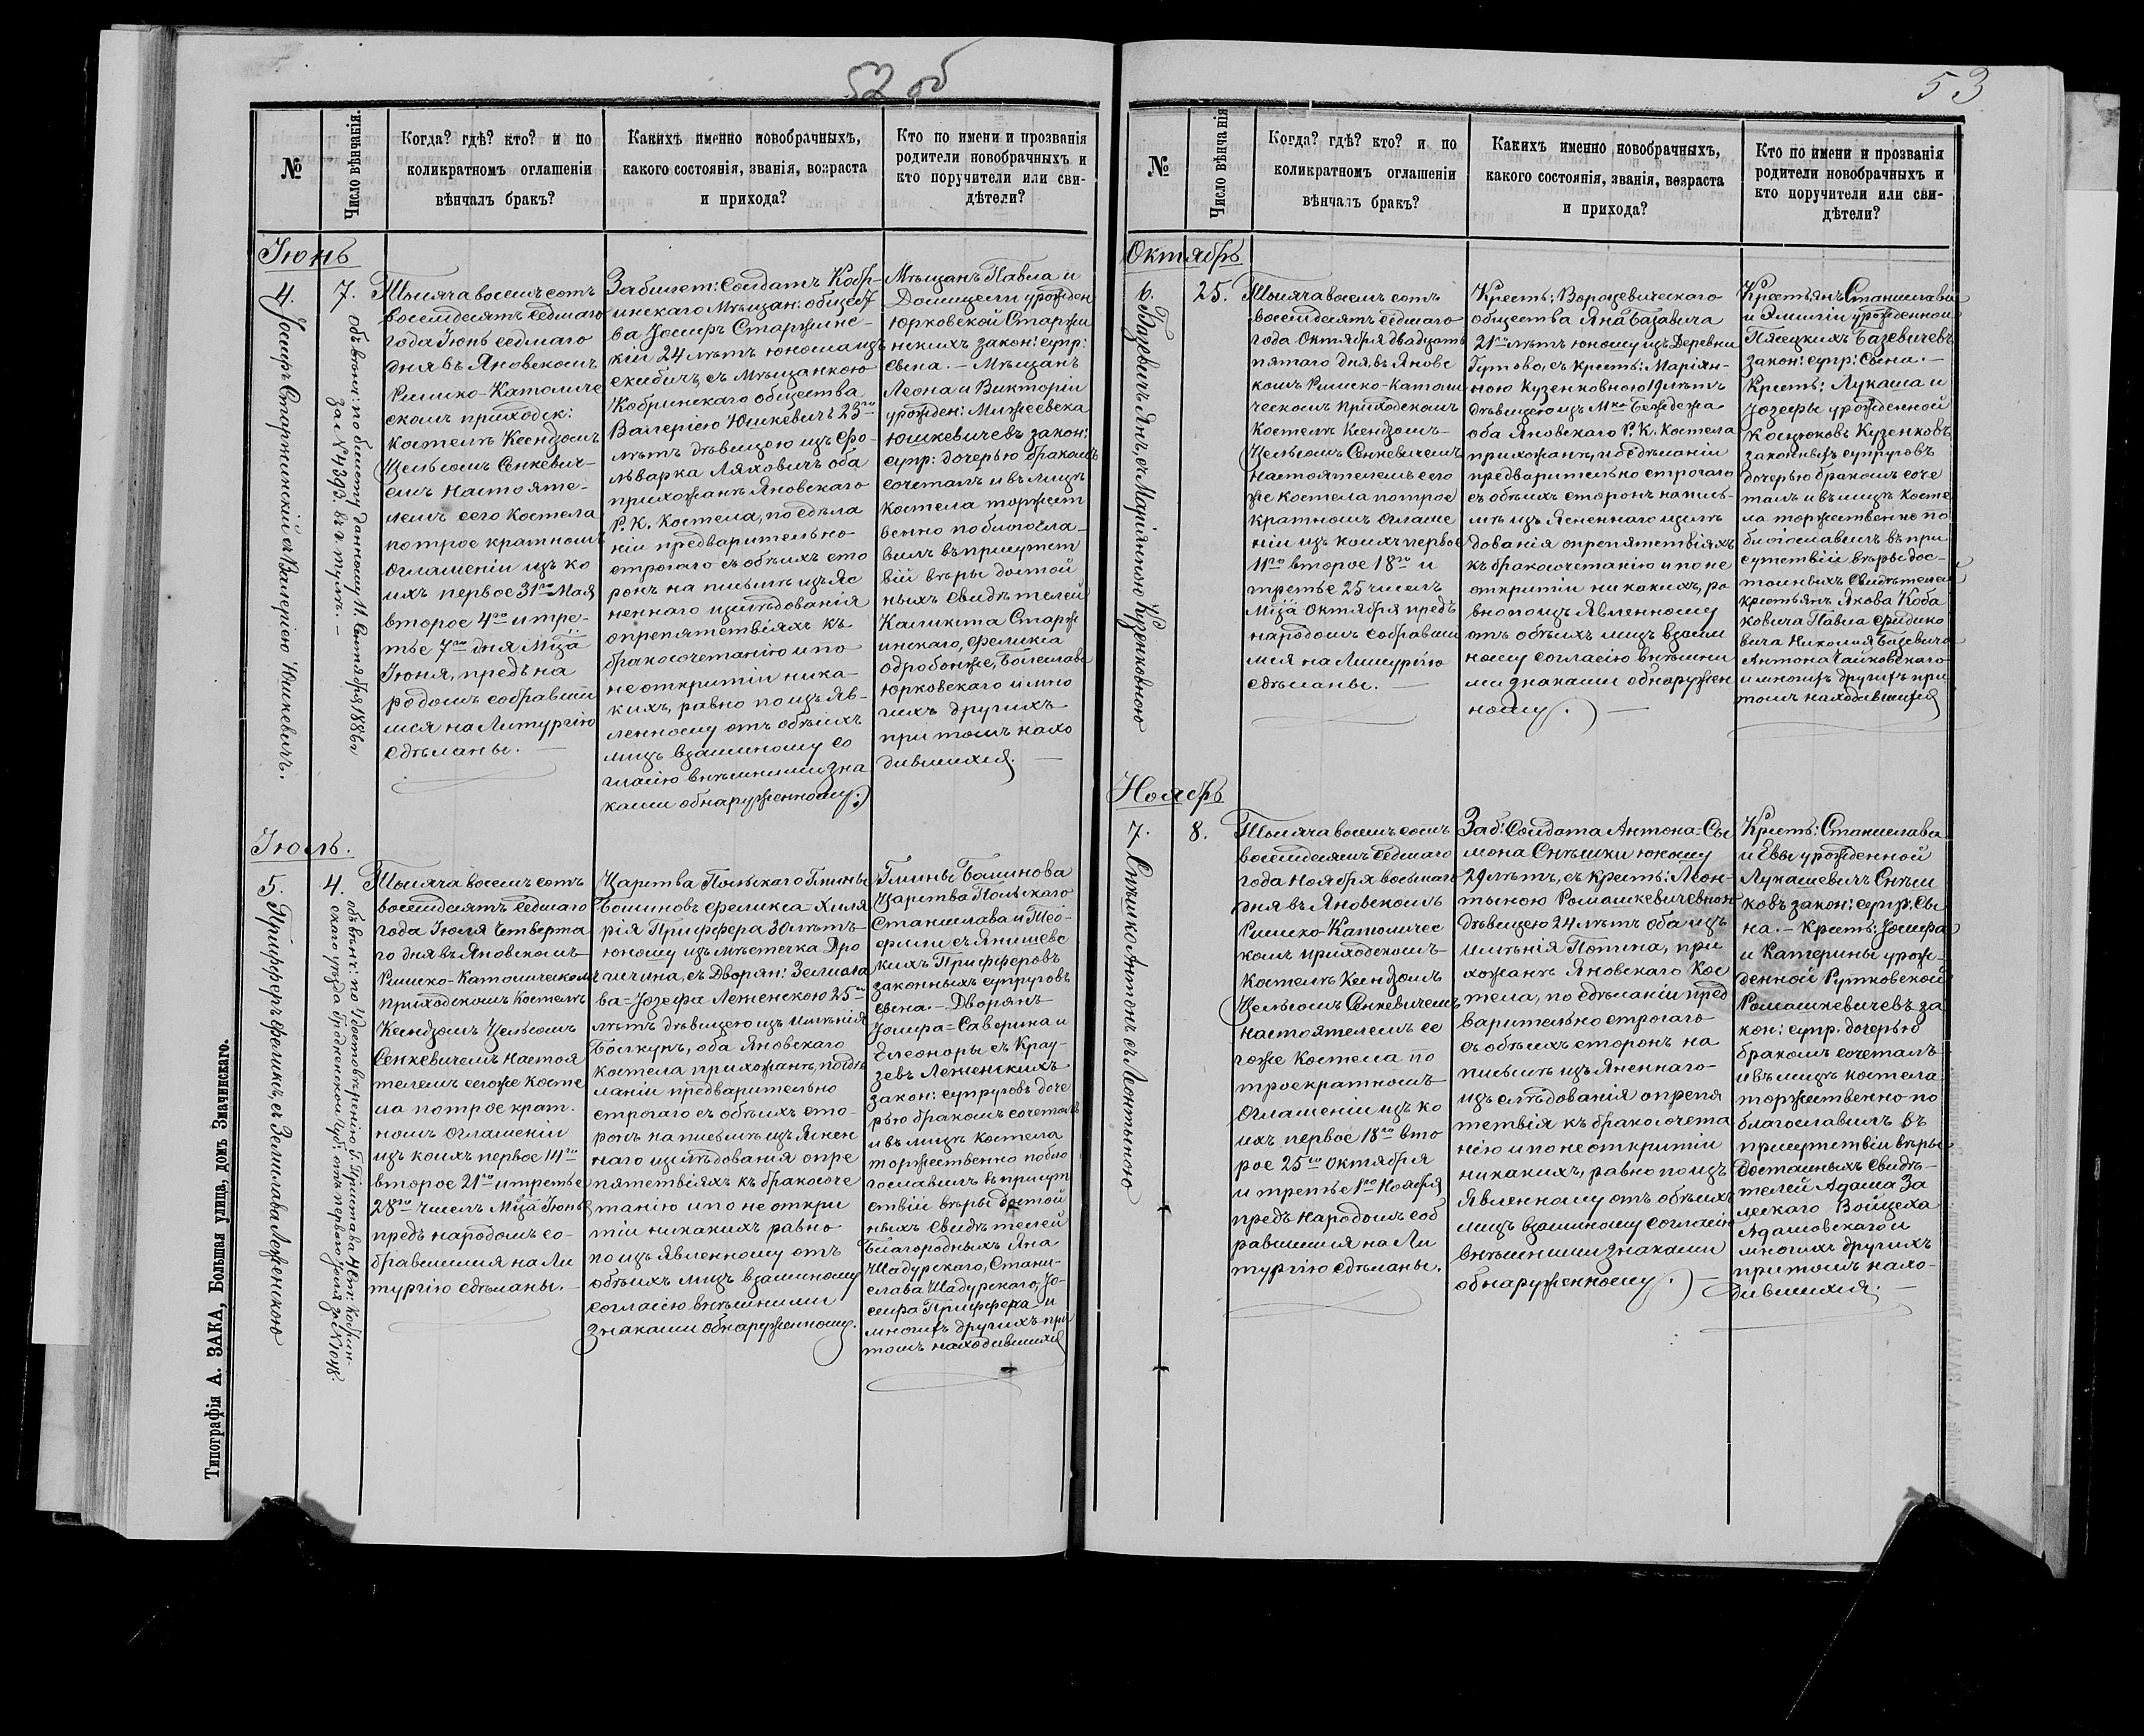 52 об
№
Число вѣнчанія.
Когда? гдѣ? кто? и по
коликратномъ оглашеніи
вѣнчалъ бракъ?
Какихъ именно новобрачныхъ,
какого состоянія, званія, возраста
и прихода?
Кто по имени и прозванія
родители новобрачныхъ и
кто поручители или сви-
дѣтели?
Іюнь
4.
Іосифъ Старжинскій съ Валеріею Юшкевичъ.
7.
объ вѣнч: по билету данному 11 Сентября 1886 г
за № 4393 въ г. Тулѣ. —
Тысяча восемь сотъ
восемдесятъ седмаго
года Іюнь седмаго
дня въ Яновскомъ
Римско-Католиче
скомъ приходск:
костелѣ Ксендзомъ
Цельсомъ Сенкевич-
емъ Настояте-
лемъ сего костела
по трое кратномъ
оглашеніи изъ ко
ихъ первое 31го Мая
второе 4го и тре-
тье 7го дня Мца
Іюня, предъ на
родомъ собравши
мся на Литургію
сдѣланы. —
Забилет: Солдатъ Кобр-
инскаго Мѣщан: общест
ва Іосифъ Старжинс-
кій 24 лѣтъ юноша изъ
съ Мѣщанкою
Кобринскаго общества
Валеріею Юшкевичъ 23го
лѣтъ дѣвицею изъ Фо-
льварка Ляховичъ оба
прихожанъ Яновскаго
Р. К. Костела, по сдѣла
ніи предварительно
строгаго съ обѣихъ сто
ронъ на письмѣ изъяс
неннаго изслѣдованія
о препятствіяхъ къ
бракосочетанію и по
не открытіи ника-
кихъ, равно по изъяв-
ленному отъ обѣихъ
лицъ взаимному со
гласію внѣшними зна
ками обнаруженному.)
Мѣщанъ Павла и
Доминцели урожден
Юрковской Старжи
нскихъ закон: супр:
сына. — Мѣщанъ
Леона и Викторіи
урожден: Мижеевска
Юшкевичевъ закон:
супр: дочерью бракомъ
сочеталъ и въ лицѣ
костела торжест
венно поблогосла-
вилъ въ присутст
віи вѣры достой
ныхъ Свидѣтелей
Каликста Старж
инскаго, Феликса
Одробонже, Болеслава
Юрковскаго и мно
гихъ другихъ
при томъ нахо
дившихся. —
Іюль.
5.
Прифферъ Феликсъ, съ Земиславою Леженскою
4.
объ вѣнч: по Удостовѣренію Г. Пристава 4 Стн: Кобрин-
скаго уѣзда Гродненской Губ: отъ перваго Іюля за № 1048.
Тысяча восемь сотъ
восемдесятъ седмаго
года Іюля Четверта
го дня въ Яновскомъ
Римско-Католическомъ
приходскомъ Костелѣ
Ксендзомъ Цельсомъ
Сенкевичемъ Настоя
телемъ сегоже косте
ла по трое крат-
номъ оглашеніи
изъ коихъ первое 14го
второе 21го и третье
28го Числъ Мца Іюнь
предъ народомъ со-
бравшимся на Ли
тургію сдѣланы. —
Царства Польскаго Гмины
Болиновъ Феликса-Хиля
рія Приффера 30 лѣтъ
юношу изъ мѣстечка Дро
гичина, съ Дворян: Земисла
ва-Юзефа Леженскою 25го
лѣтъ дѣвицею изъ имѣнія
Болкунъ, оба Яновскаго
костела прихожанъ, по сдѣ
ланіи предварительно
строгаго съ обѣихъ сто-
ронъ на письмѣ изъяснен
наго изслѣдованія о пре
пятствіяхъ къ бракосоче
танію и по не откры
тіи никакихъ равно
по изъявленному отъ
обѣихъ лицъ взаимному
согласію внѣшними
знаками обнаруженному.
Гмины Болинова
Царства Польскаго
Станислава и Тео-
фили съ Янишевс
кихъ Прифферовъ
законныхъ супруговъ
сына. — Дворянъ
Іосифа-Саверина и
Елеоноры съ Крау-
зевъ Леженскихъ
закон: супруговъ доче
рью бракомъ сочеталъ
и въ лицѣ костела
торжественно побло
гославилъ въ присут
ствіи вѣры достой
ныхъ Свидѣтелей
Благородныхъ Яна
Шадурскаго, Стани-
слава Шадурскаго, Іо-
сифа Приффера и
многихъ другихъ при
томъ находившихся
Типографія А. ЗАКА, Большая улица, домъ Значинскаго.
53
№
Число вѣнчанія
Когда? гдѣ? кто? и по
коликратномъ оглашеніи
вѣнчалъ бракъ?
Какихъ именно новобрачныхъ,
какого состоянія, званія, возраста
и прихода?
Кто по имени и прозванія
родители новобрачныхъ и
кто поручители или сви-
дѣтели?
Октябрь
6.
Базевичъ Янъ, съ Маріянною Кузенковною
25.
Тысяча восемь сотъ
восемдесятъ седмаго
года Октября двадцать
пятаго дня, въ Яновс
комъ Римско-Катол
ческомъ Приходскомъ
Костелѣ Ксендзомъ
Цельсомъ Сенкевичемъ
Настоятелемъ сего
же костела по трое
кратномъ оглаше
ніи изъ коихъ первое
11го второе 18го и
третье 25 числъ
Мца Октября предъ
народомъ собравши
мся на Литургію
сдѣланы. —
Крестъ: Вороцевичскаго
общества Яна Базевича
21го лѣтъ юношу изъ Деревни
Гутово, съ крестъ: Маріян-
ною Кузенковною 19 лѣтъ
дѣвицею изъ Мка Бездежа
оба Яновскаго Р. К. Костела
прихожанъ, по сдѣланіи
предварительно строгаго
съ обѣихъ сторонъ на пись-
мѣ изъясненнаго изслѣ
дованія о препятствіяхъ
къ бракосочетанію и по не
открытіи никакихъ, ра
вно по изъявленному
отъ обѣихъ лицъ взаим
ному согласію внѣшни
ми знаками обнаружен
ному.) —
Крестьянъ Станислава
и Эмиліи урожденной
Пясецкихъ Базевичевъ
закон: супр: сына. —
Крестъ: Лукаша и
Юзефы урожденной
Коцюковъ Кузенковъ
законныхъ супруговъ
дочерью бракомъ соче
талъ и въ лицѣ косте
ла торжественно по
благославилъ въ при
сутствіи вѣры дос-
тоиныхъ Свидѣтелей
крестьянъ Якова Коба
ковича Павла Фридико
вича Николая Базевича
Антона Чайковскаго
и многихъ другихъ при
томъ находившихся
Ноябрь
7.
Снѣшко Антонъ съ Леонтыною
8.
Тысяча восемь сотъ
восемдесятъ седмаго
года Ноября восьмаго
дня въ Яновскомъ
Римско-Католичес
комъ приходскомъ
Костелѣ Ксендзомъ
Цельсомъ Сенкевичемъ
Настоятелемъ се
гоже Костела по
троекратномъ
Оглашеніи изъ ко
ихъ первое 18го вто
рое 25го Октября
и третье 1го Ноября
предъ Народомъ соб
равшимся на Ли
тургію сдѣланы.
Заб: Солдата Антона-Сы
мона Снѣшки юношу
29 лѣтъ, съ крестъ: Леон-
тыною Ромашкевичевною
дѣвицею 24 лѣтъ оба изъ
имѣнія Потина, при
хожанъ Яновскаго Кос
тела, по сдѣланіи пред
варительно строгаго
съ обѣихъ сторонъ на
письмѣ изъясненнаго
изслѣдованія о препя
тствія къ бракосочета
нію и по не открытіи
никакихъ, равно по изъ
явленному отъ обѣихъ
лицъ взаимному согласію
внѣшними знаками
обнаруженному.) —
Крестъ: Станислава
и Евы урожденной
Лукашевичъ Снѣш
ковъ закон: супр: Сы
на. — Крестъ: Іосифа
и Катерины урож-
денной Рутковской
Ромашкевичевъ за
кон: супр. дочерью
бракомъ сочеталъ
и въ лицѣ костела
торжественно по
благославилъ въ
присутствіи вѣры
достоиныхъ свидѣ-
телей Адама За
лескаго Войцеха
Адамовскаго и
многихъ другихъ
при томъ нахо-
дившихся. —